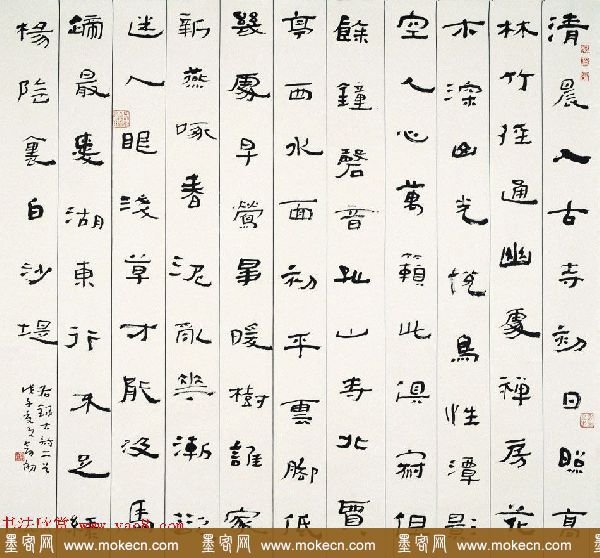 清晨入古寺初日照高
林竹徑通幽處禪房花
木深山光悅鳥性潭影
空人心萬籟此俱寂但
餘鐘磬音孤山寺北賈
亭西水面初平雲腳低
幾處早鶯爭暖樹誰家
新燕啄春泥亂華漸欲
迷人眼淺草才能沒馬
蹄最愛湖東行不足綠
楊陰裏白沙堤
右錄古詩二首
戊子夏
书法欣赏 www.yac8.com
墨客网 www.mokecn.com
墨客网 www.mokecn.com
墨客网 www.mokecn.com